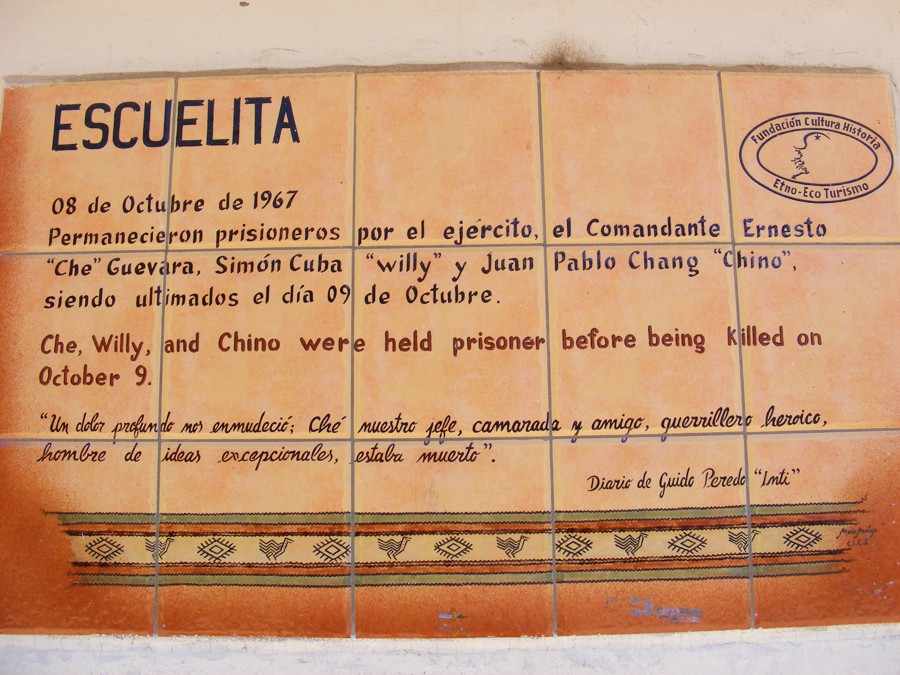 ESCUELITA
Fundación Cultura Historia
Etno-Eco Turismo
08 de Octubre de 1967
Permanecieron prisioneros por el ejército, el Comandante Ernesto
"Che" Guevara, Simón Cuba "willy" y Juan Pablo Chang "Chino",
siendo ultimados el día 09 de Octubre.
Che, Willy, and Chino were held prisoner before being killed on
October 9.
"Un dolor profundo nos enmudeció; Ché nuestro jefe, camarada y amigo, guerrillero heroico,
hombre de ideas excepcionales, estaba muerto".
Diario de Guido Peredo "Inti"